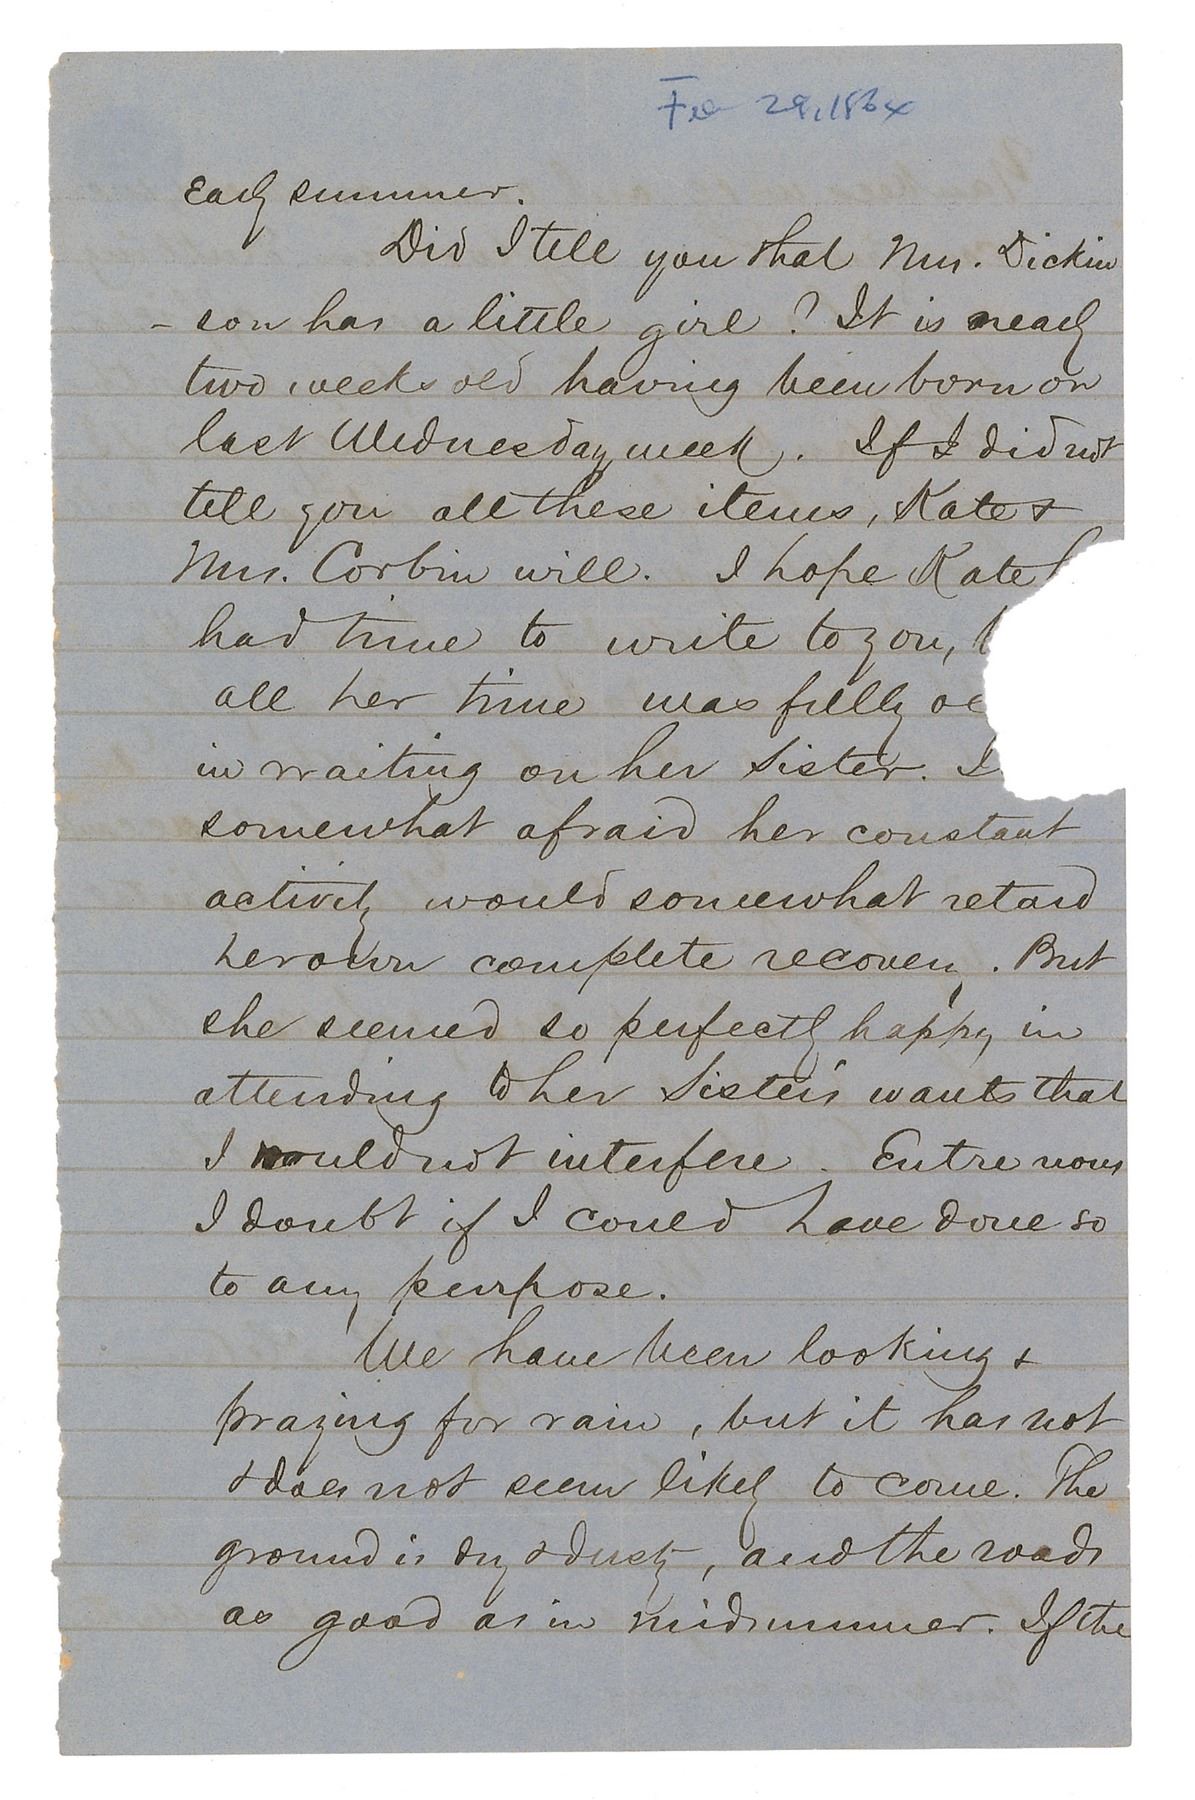 Feb 29, 1864
Early summer.
Did I tell you that Mrs. Dickin
- son has a little girl? It is nearly
two weeks old having been born on
last Wednesday week. If I did not
tell you all these items, Kate &
Mrs. Corbin will. I hope Kate
had time to write to you,
all her time was fully oc
in waiting on her Sister. I
somewhat afraid her constant
activity would somewhat retard
her own complete recovery. But
she seemed so perfectly happy in
attending to her Sister's wants that
I would not interfere. Entre nous
I doubt if I could have done so
to any purpose.
We have been looking &
praying for rain, but it has not
& does not seem likely to come. The
ground is dry & dusty, and the roads
as good as in midsummer. If the